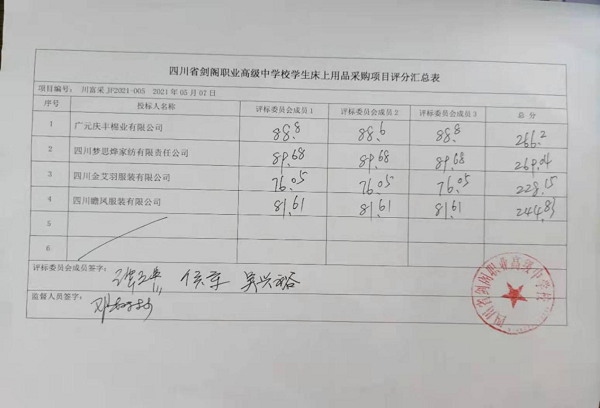 四川省剑阁职业高级中学校学生床上用品采购项目评分汇总表
项目编号： 川富采JF2021-005 2021年05月07日
序号 投标人名称 评标委员会成员1 评标委员会成员2 评标委员会成员3 总 分
1 广元庆丰棉业有限公司 88.8 88.6 88.8 266.2
2 四川梦思烨家纺有限责任公司 89.68 89.68 89.68 269.04
3 四川金艾羽服装有限公司 76.05 76.05 76.05 228.15
4 四川瞻风服装有限公司 81.61 81.61 81.61 244.83
5
6
评标委员会成员签字： 吴兴裕
监督人员签字：
四川省剑阁职业高级中学校